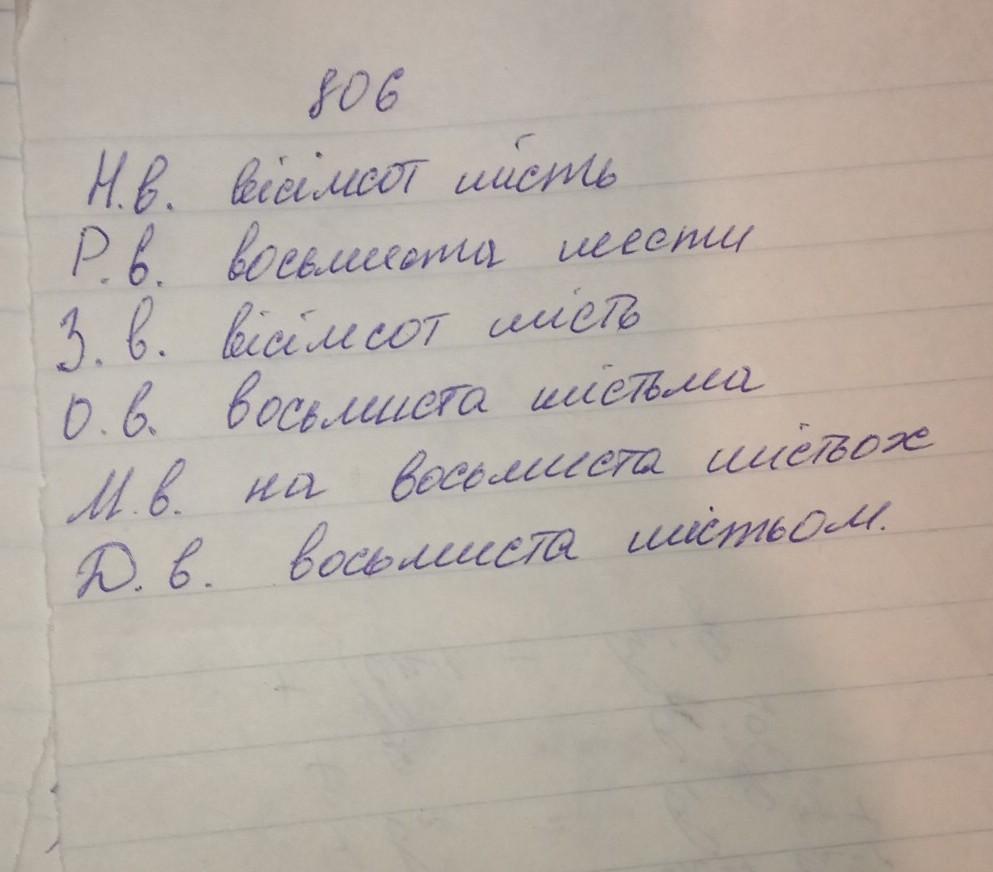 806
Н.в. вісімсот шість
Р.в. восьмиста шести
З.в. вісімсот шість
О.в. восьмиста шістьма
М.в. на восьмиста шістьох
Д.в. восьмиста шістьом.